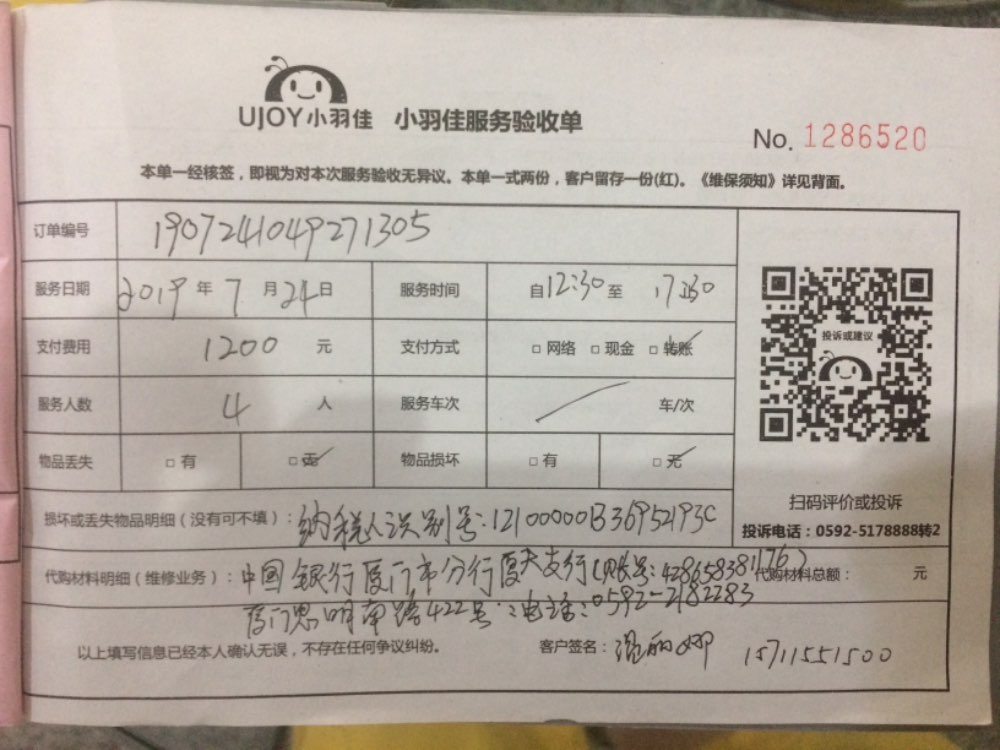 UJOY小羽佳 小羽佳服务验收单
No. 1286520
本单一经核签，即视为对本次服务验收无异议。本单一式两份，客户留存一份(红)。《维保须知》详见背面。
订单编号 1907241049271305
服务日期 2019年7月24日 服务时间 自12:30至17:30
支付费用 1200元 支付方式 □网络 □现金 □转账
服务人数 4人 服务车次 车/次
物品丢失 □有 □无 物品损坏 □有 □无
投诉或建议
扫码评价或投诉
投诉电话：0592-5178888转2
损坏或丢失物品明细（没有可不填）：纳税人识别号：12100000B36952193C
代购材料明细（维修业务）：中国银行厦门市分行厦大支行（账号：428658381176） 代购材料总额： 元
厦门思明南路422号：电话：0592-2182283
以上填写信息已经本人确认无误，不存在任何争议纠纷。 客户签名：温丽娜 15711551500